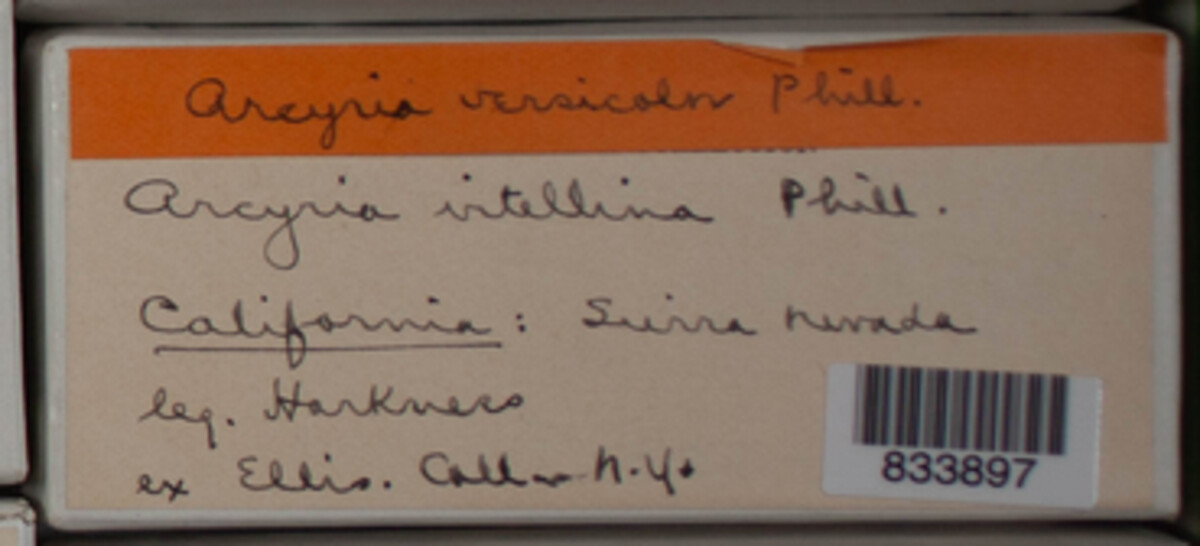 Arcyria versicolor Phill.
Arcyria vitellina Phill.
California: Sierra Nevada
leg. Harkness
ex Ellis. Coll. N.Y.
833897